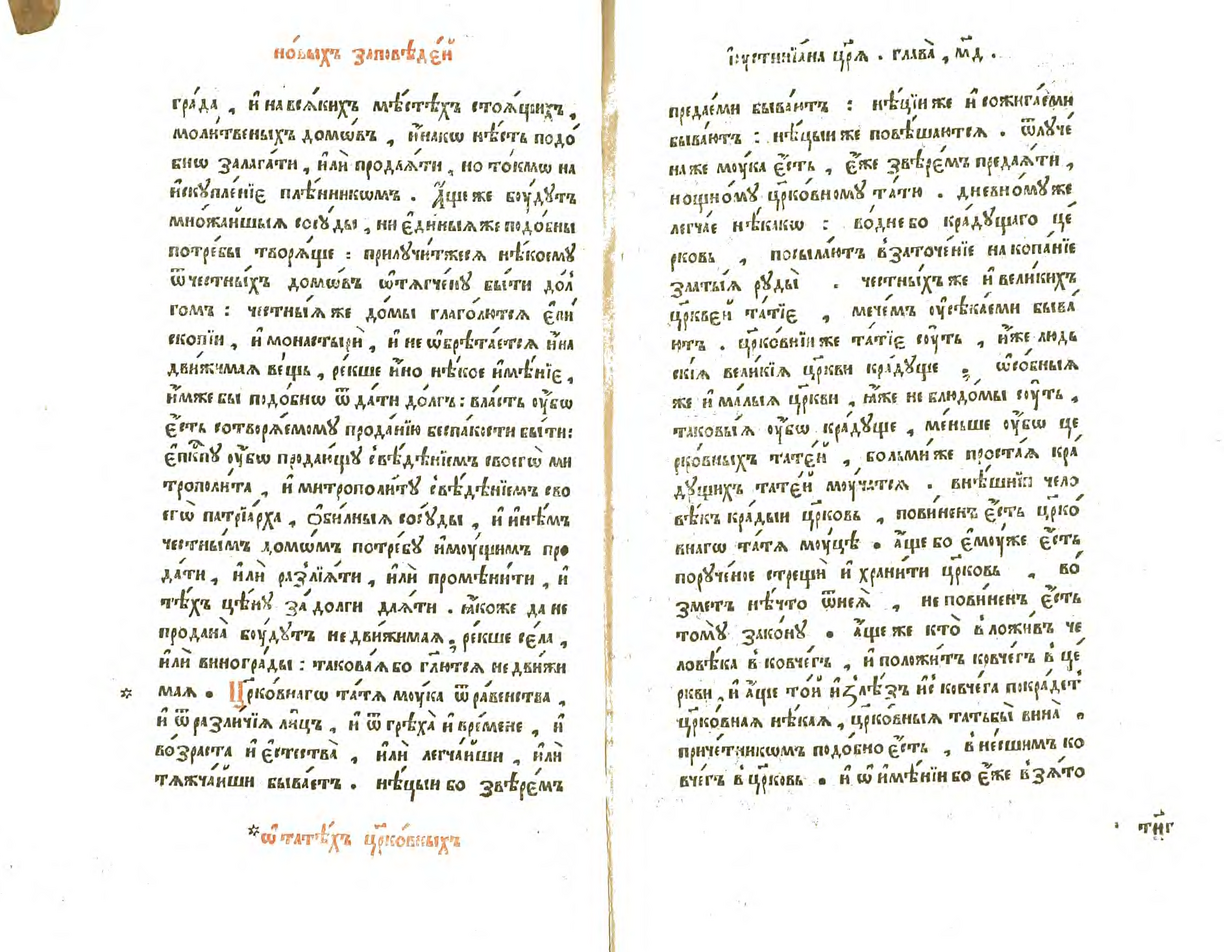 но́выхъ заповѣде́й
гра́да , и҆ на всѧ́кихъ мѣ́стѣхъ стоѧ́щихъ ,
моли́твеныхъ домѡ́въ , и҆на́кѡ нѣ́сть подо́
бнѡ залага́ти , и҆лѝ продаѧ́ти , но то́кмѡ на
и҆скупле́нїе плѣ́нникѡмъ . А҆́ще же бꙋ́дꙋтъ
мно́жайшыѧ сосꙋ́ды , ни є҆ди́ныѧ же подо́бны
потре́бы творѧ́ще : прилꙋчи́тжесѧ нѣ́коемꙋ
ѿ честны́хъ домѡ́въ ѡ҆тѧгче́нꙋ бы́ти до́л
гомъ : честны́ѧ же до́мы глаго́лютсѧ є҆пи
ско́пїи , и҆ монастырѝ , и҆ не ѡ҆брѣта́етсѧ и҆́на
дви́жимаѧ ве́щь , ре́кше и҆́но нѣ́кое и҆мѣ́нїе ,
и҆́мже бы подо́бнѡ ѿда́ти до́лгъ : вла́сть ᲂу҆́бѡ
є҆́сть сотворѧ́емомꙋ прода́нїю беспа́кости бы́ти :
є҆п҃кпꙋ ᲂу҆́бѡ продаю́щꙋ свѣ́дѣнїемъ своегѡ̀ ми
трополи́та , и҆ митрополи́тꙋ свѣ́дѣнїемъ сво
егѡ̀ патрїа́рха , ѻ҆би́лныѧ сосꙋ́ды , и҆ и҆нѣ́мъ
че́стнымъ домѡ́мъ потре́бꙋ и҆мꙋ́щимъ про
да́ти , и҆лѝ разлїѧ́ти , и҆лѝ промѣни́ти , и҆
тѣ́хъ цѣ́нꙋ за до́лги даѧ́ти . ꙗ҆́коже да не
продана̀ бꙋ́дꙋтъ недви́жимаѧ , ре́кше се́ла ,
и҆лѝ виногра́ды : такова́ѧ бо гл҃ютсѧ недви́жи
маѧ . Цр҃ко́внагѡ та́тѧ мꙋ́ка ѿ ра́венства ,
и҆ ѿ разли́чїѧ ли́цъ , и҆ ѿ грѣха̀ и҆ вре́мене , и҆
во́зраста и҆ є҆стества̀ , и҆лѝ легча́йши , и҆лѝ
тѧжча́йши быва́етъ . нѣ́цыи бо звѣре́мъ
*ѡ҆ та́тѣхъ цр҃ко́вныхъ
і҆ꙋстинїа́на цр҃ѧ̀ . глава̀ , м҃д .
предае́ми быва́ютъ : нѣ́цїи же и҆ сожига́еми
быва́ютъ : нѣ́цыи же повѣ́шаютсѧ . ѿлꙋче́
на же мꙋ́ка є҆́сть , є҆́же звѣре́мъ предаѧ́ти ,
нощно́мꙋ цр҃ко́вномꙋ та́тю . дневно́мꙋ же
легча́е нѣ́какѡ : во дне бо кра́дꙋщаго це́
рковь , посыла́ютъ в заточе́нїе на копа́нїе
златы́ѧ рꙋды̀ . честны́хъ же и҆ вели́кихъ
цр҃кве́й та́тїе , мече́мъ ᲂу҆сѣка́еми быва́
ютъ . цр҃ко́внїи же та́тїе сꙋ́ть , и҆́же людь
скі́ѧ вели́кїѧ цр҃кви кра́дꙋще , ѡ҆со́быѧ
же и҆ ма́лыѧ цр҃кви , ꙗ҆́же не блюдо́мы сꙋ́ть ,
таковы́ѧ ᲂу҆́бѡ кра́дꙋще , ме́ньше ᲂу҆́бѡ це
рко́вныхъ тате́й , бо́льми же проста́ѧ кра́
дꙋщихъ тате́й мꙋ́чатсѧ . внѣ́шнїи чело
вѣ́къ кра́дыи цр҃ковь , пови́ненъ є҆́сть цр҃ко́
внагѡ та́тѧ мꙋ́цѣ . а҆́ще бо є҆мꙋ́же є҆́сть
порꙋче́ное стрещѝ и҆ храни́ти цр҃ковь , во́
зметъ нѣ́что ѿ неѧ̀ , непови́ненъ є҆́сть
томꙋ̀ зако́нꙋ . а҆́ще же кто̀ вложи́въ че
ловѣ́ка в ковче́гъ , и҆ положи́тъ ковче́гъ в це́
ркви , и҆ а҆́ще то́й и҆злѣ́зъ ис ковче́га покра́детъ
цр҃ко́внаѧ нѣ́каѧ , цр҃ко́вныѧ татьбы̀ вина̀ .
приче́тникѡмъ подо́бно є҆́сть , внѣ́сшимъ ко
вче́гъ в цр҃ковь . и҆ ѡ҆ и҆мѣ́нїи бо є҆́же взѧ́то
ти҃г